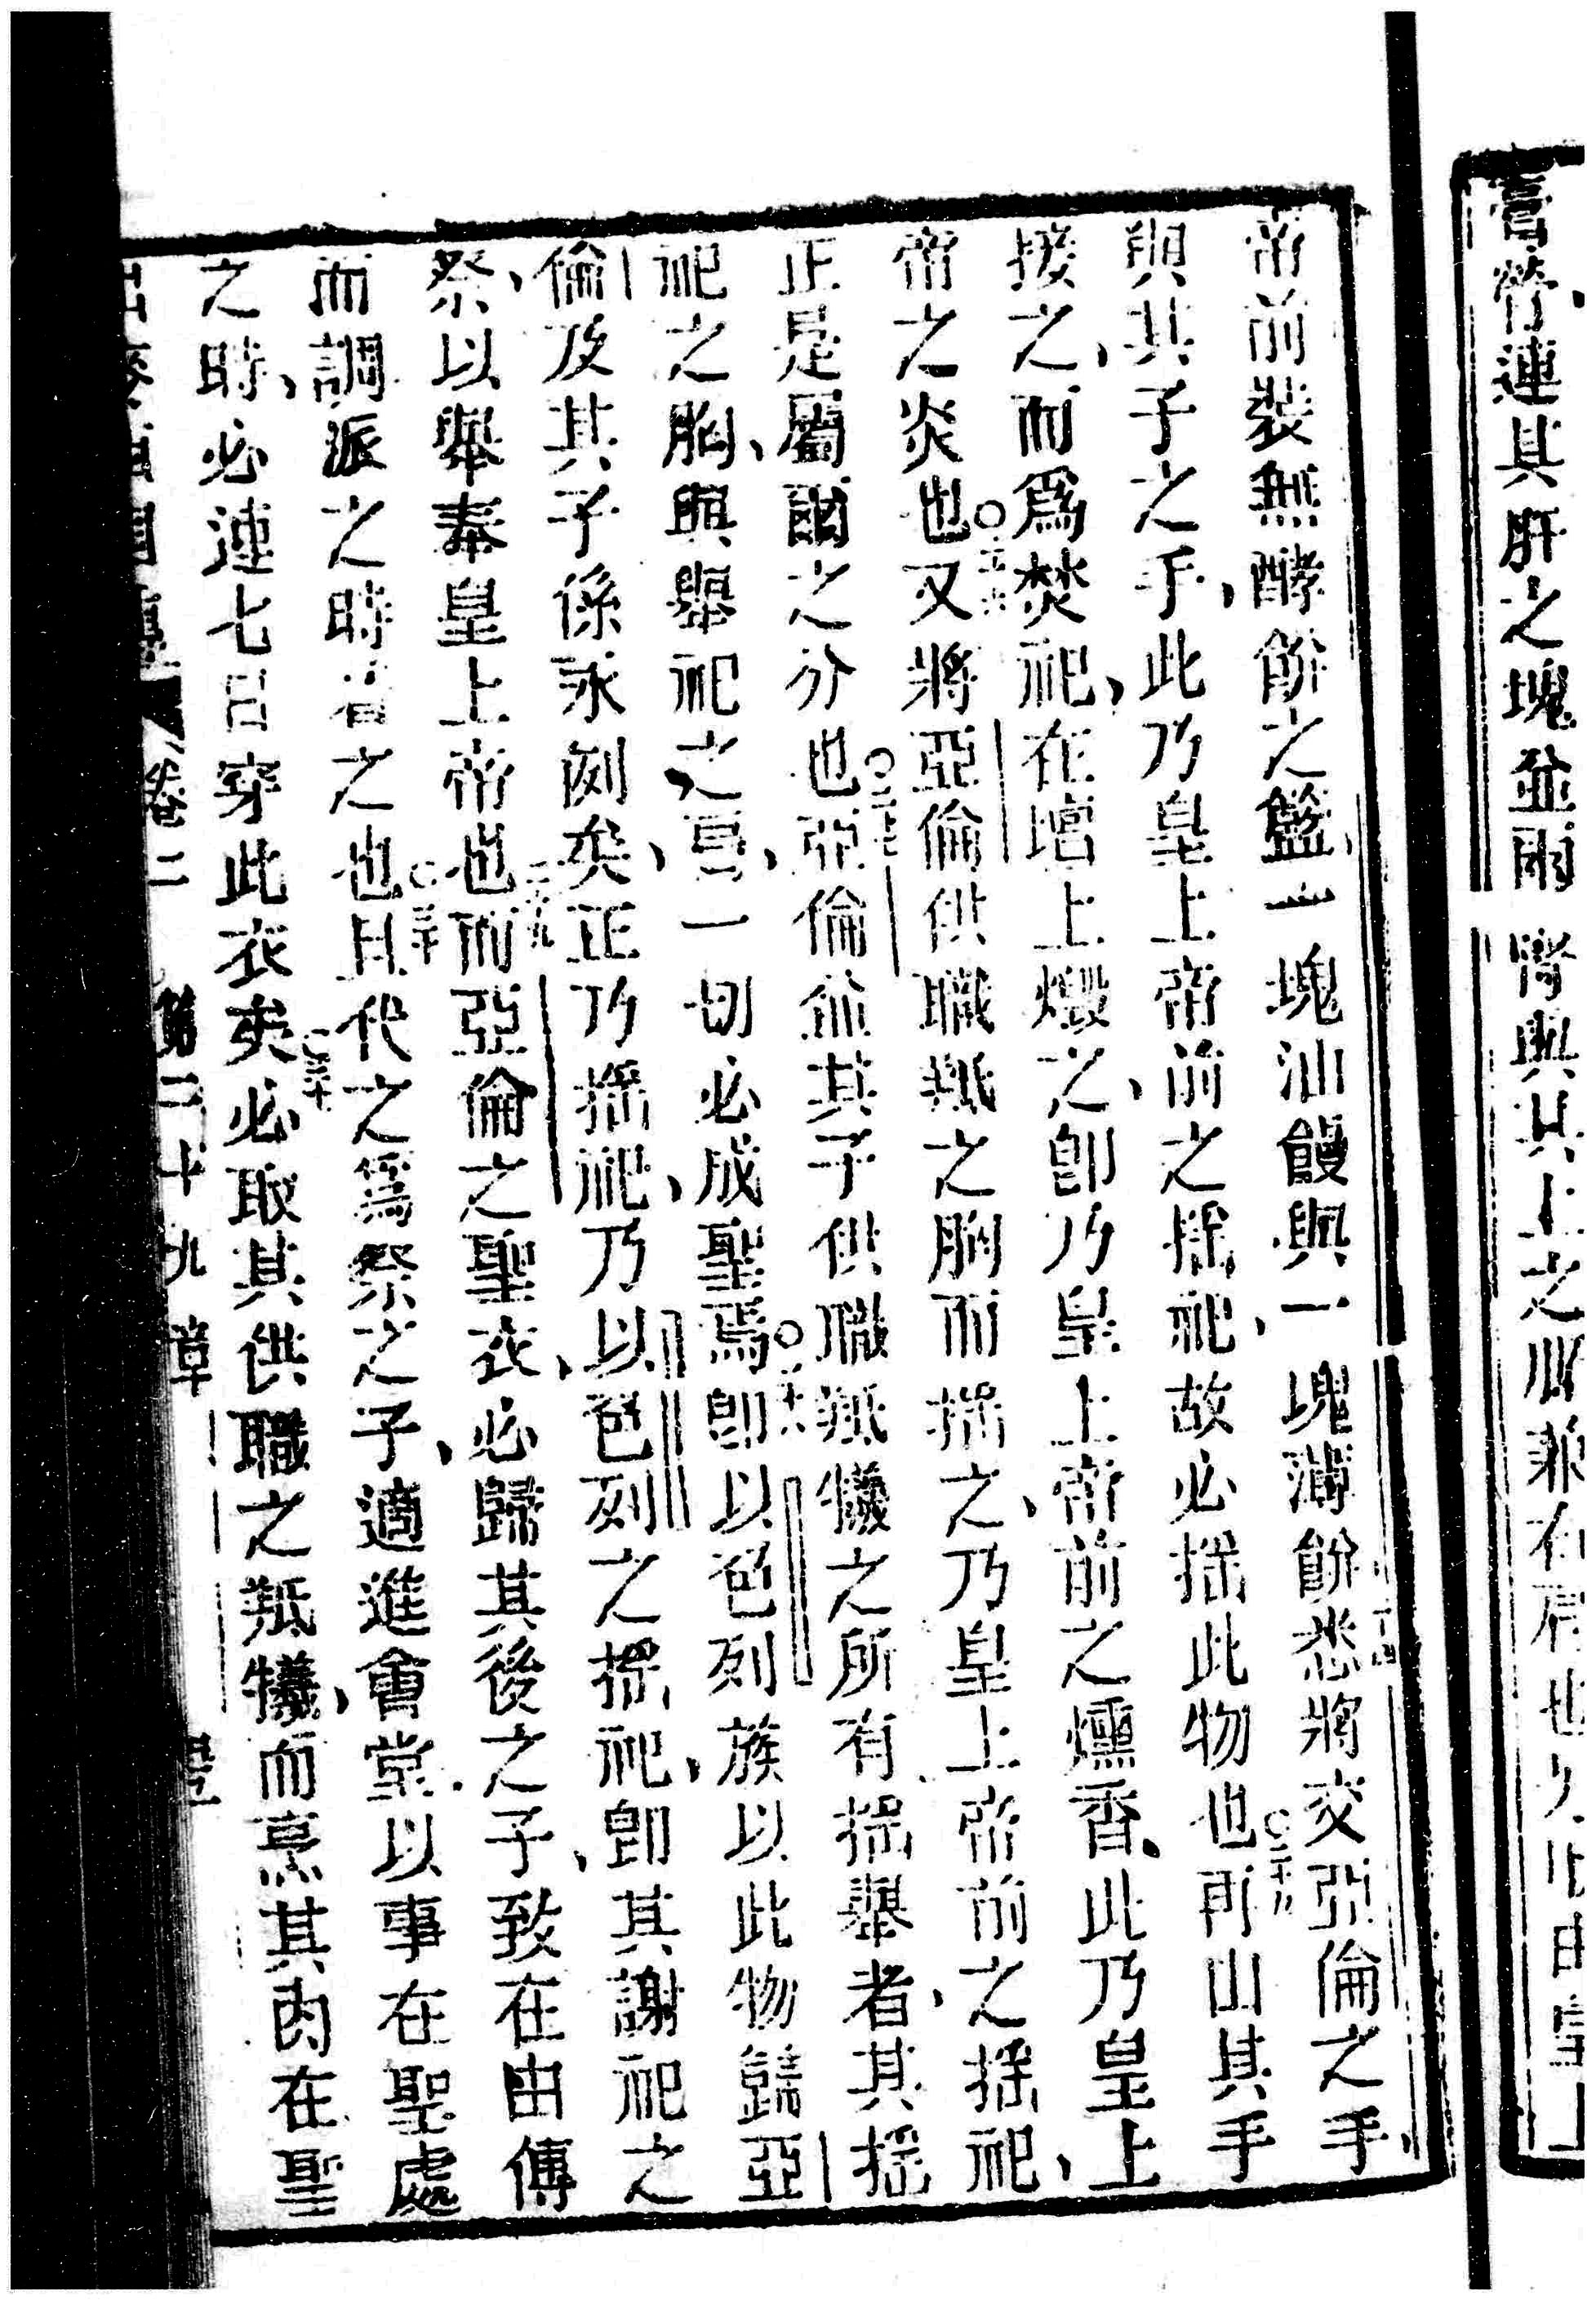 膏膋連其肝之塊並兩腎與其上之脂兼右肩也
帝前裝無酵餅之籃一塊油饅與一塊薄餅悉將交亞倫之手
與其子之手此乃皇上帝前之搖祀故必搖此物也再由其手
接之而為焚祀在壇上燬之卽乃皇上帝前之燻香此乃皇上
帝之炎也又將亞倫供職羝之胸而搖之乃皇上帝前之搖祀
正是屬爾之分也亞倫並其子供職羝犧之所有搖舉者其搖
祀之胸與舉祀之肩一切必成聖焉卽以色列族以此物饋亞
倫及其子係永例矣正乃搖祀乃以色列之搖祀卽其謝祀之
祭以舉奉皇上帝也而亞倫之聖衣必歸其後之子致在由傅
而調派之時着之也且代之為祭之子適進會堂以事在聖處
之時必連七日穿此衣矣必取其供職之羝犧而烹其肉在聖
卷二 第二十九章